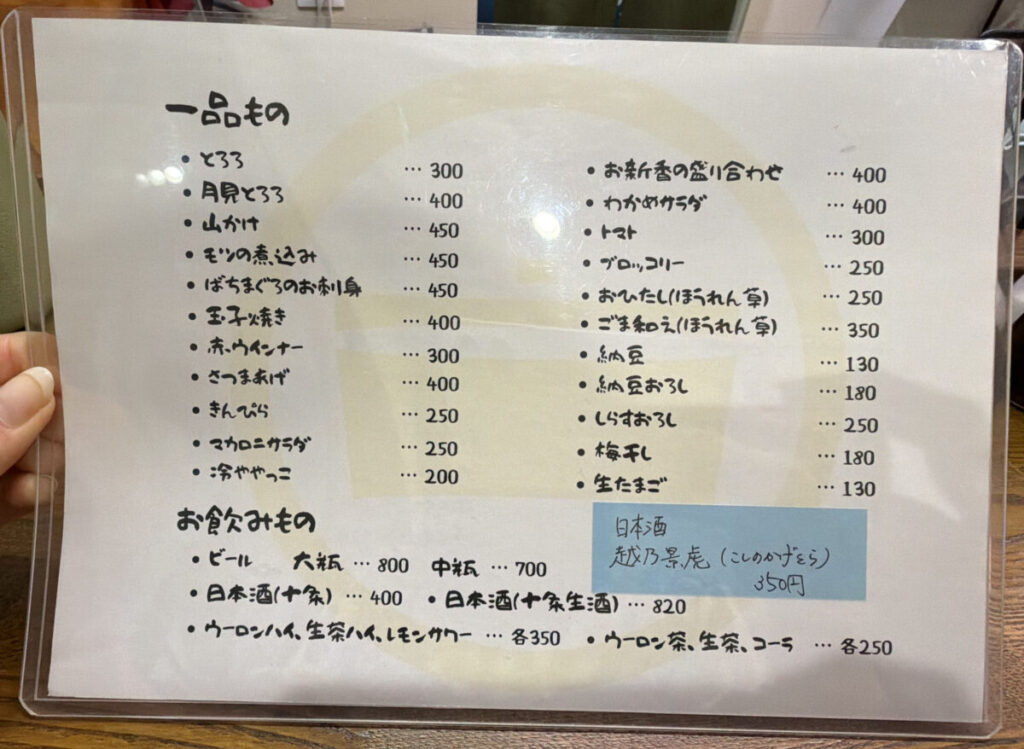 一品もの
・とろろ … 300
・月見とろろ … 400
・山かけ … 450
・モツの煮込み … 450
・ばちまぐろのお刺身 … 450
・玉子焼き … 400
・赤ウインナー … 300
・さつまあげ … 400
・きんぴら … 250
・マカロニサラダ … 250
・冷ややっこ … 200
・お新香の盛り合わせ … 400
・わかめサラダ … 400
・トマト … 300
・ブロッコリー … 250
・おひたし(ほうれん草) … 250
・ごま和え(ほうれん草) … 350
・納豆 … 130
・納豆おろし … 180
・しらすおろし … 250
・梅干し … 180
・生たまご … 130
お飲みもの
・ビール 大瓶 … 800 中瓶 … 700
・日本酒(十条) … 400 ・日本酒(十条生酒) … 820
・ウーロンハイ、生茶ハイ、レモンサワー … 各350 ・ウーロン茶、生茶、コーラ … 各250
日本酒
越乃景虎(こしのかげとら)
350円